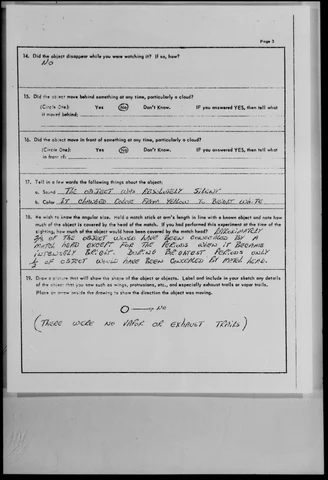 Page 3
14. Did the object disappear while you were watching it? If so, how?
NO
15. Did the object move behind something at any time, particularly a cloud?
(Circle One): Yes No Don't Know. IF you answered YES, then tell what
it moved behind:
16. Did the object move in front of something at any time, particularly a cloud?
(Circle One): Yes No Don't Know. IF you answered YES, then tell what
in front of:
17. Tell in a few words the following things about the object:
a. Sound THE OBJECT WAS ABSOLUTELY SILENT
b. Color IT CHANGED COLOR FROM YELLOW TO BRIGHT WHITE
18. We wish to know the angular size. Hold a match stick at arm's length in line with a known object and note how
much of the object is covered by the head of the match. If you had performed this experiment at the time of the
sighting, how much of the object would have been covered by the match head? APPROXIMATELY
OF THE OBJECT WOULD HAVE BEEN CONCEALED BY A
MATCH HEAD EXCEPT FOR THE PERIODS WHEN IT BECAME
INTENSELY BRIGHT. DURING BRIGHTEST PERIODS ONLY
OF OBJECT WOULD HAVE BEEN CONCEALED BY MATCH HEAD.
19. Draw a picture that will show the shape of the object or objects. Label and include in your sketch any details
of the object that you saw such as wings, protrusions, etc., and especially exhaust trails or vapor trails.
Place an arrow beside the drawing to show the direction the object was moving.
NO
(THERE WERE NO VAPOR OR EXHAUST TRAILS)